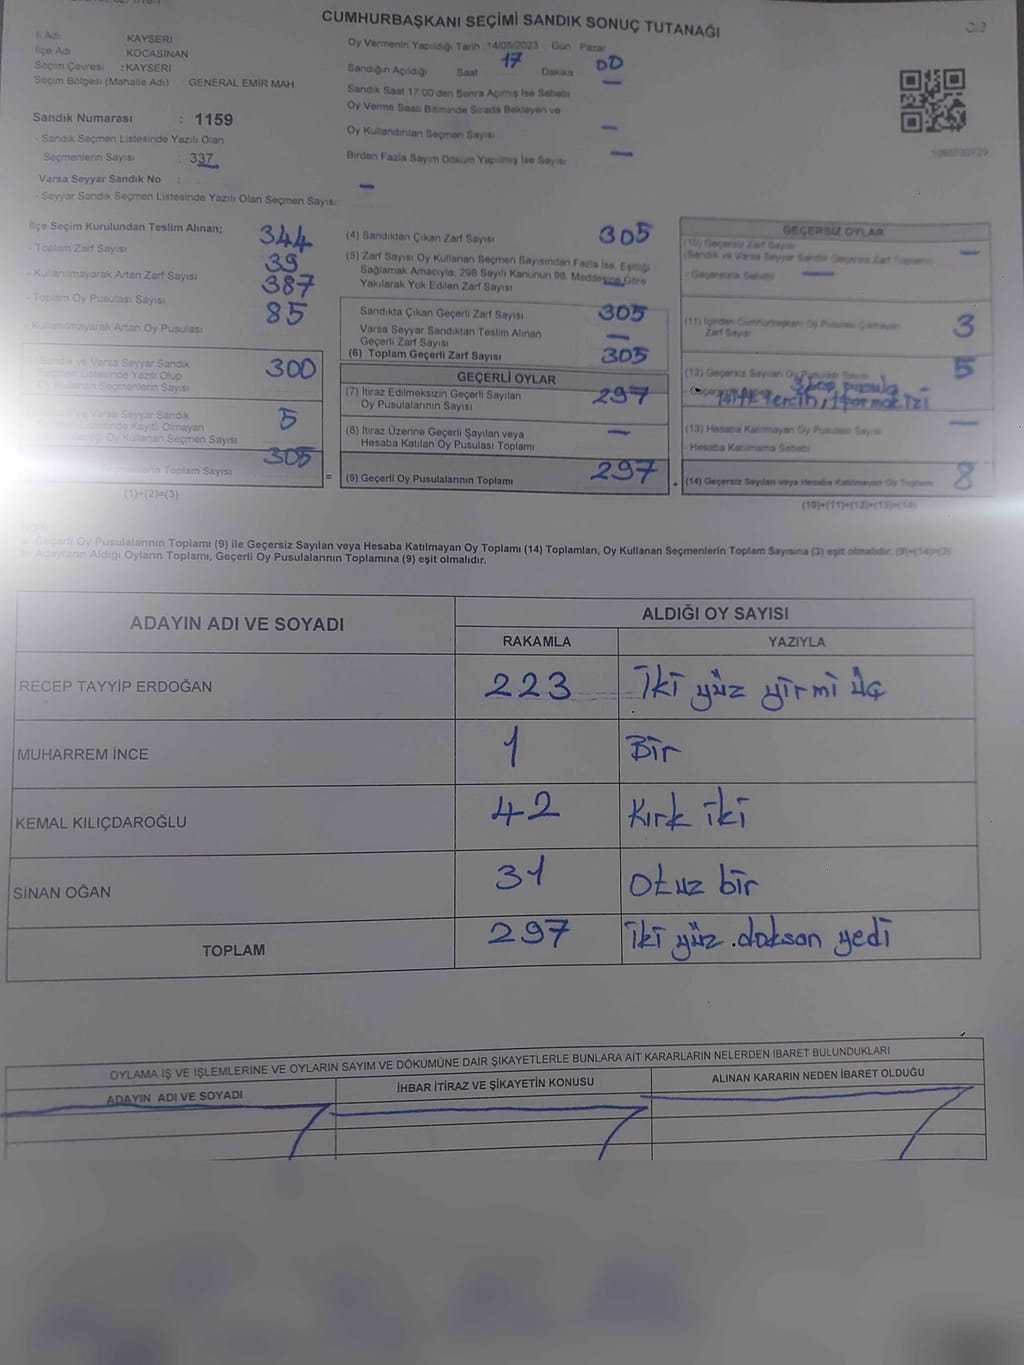 CUMHURBAŞKANI SEÇİMİ SANDIK SONUÇ TUTANAĞI
İl Adı : KAYSERİ
İlçe Adı : KOCASİNAN
Seçim Çevresi : KAYSERİ
Seçim Bölgesi (Mahalle Adı) GENERAL EMİR MAH
Sandık Numarası : 1159
- Sandık Seçmen Listesinde Yazılı Olan
Seçmenlerin Sayısı : 337
Varsa Seyyar Sandık No :
- Seyyar Sandık Seçmen Listesinde Yazılı Olan Seçmen Sayısı —
Oy Vermenin Yapıldığı Tarih 14/05/2023 Gün Pazar
Sandığın Açıldığı Saat 17 Dakika 00
Sandık Saat 17:00'den Sonra Açımış İse Sebebi —
Oy Verme Saati Bitiminde Sırada Bekleyen ve
Oy Kullandırılan Seçmen Sayısı —
Birden Fazla Sayım Döküm Yapılmış İse Sayısı —
İlçe Seçim Kurulundan Teslim Alınan;
- Toplam Zarf Sayısı 344
- Kullanılmayarak Artan Zarf Sayısı 39
- Toplam Oy Pusulası Sayısı 387
- Kullanılmayarak Artan Oy Pusulası 85
Sandık ve Varsa Seyyar Sandık
Seçmen Listesinde Yazılı Olup
Oy Kullanan Seçmenlerin Sayısı 300
ve Varsa Seyyar Sandık
Listesinde Kayıtlı Olmayan
Oy Kullanan Seçmen Sayısı 5
Seçmenlerin Toplam Sayısı 305
(1)+(2)=(3)
=
(4) Sandıktan Çıkan Zarf Sayısı 305
(5) Zarf Sayısı Oy Kullanan Seçmen Sayısından Fazla İse, Eşitliği
Sağlamak Amacıyla, 298 Sayılı Kanunun 98. Maddesine Göre
Yakılarak Yok Edilen Zarf Sayısı —
Sandıkta Çıkan Geçerli Zarf Sayısı 305
Varsa Seyyar Sandıktan Teslim Alınan
Geçerli Zarf Sayısı —
(6) Toplam Geçerli Zarf Sayısı 305
GEÇERLİ OYLAR
(7) İtiraz Edilmeksizin Geçerli Sayılan
Oy Pusulalarının Sayısı 297
(8) İtiraz Üzerine Geçerli Sayılan veya
Hesaba Katılan Oy Pusulası Toplamı —
(9) Geçerli Oy Pusulalarının Toplamı 297
+
GEÇERSİZ OYLAR
(10) Geçersiz Zarf Sayısı
(Sandık ve Varsa Seyyar Sandık Geçersiz Zarf Toplamı) —
- Geçersizlik Sebebi —
(11) İçinden Cumhurbaşkanı Oy Pusulası Çıkmayan
Zarf Sayısı 3
(12) Geçersiz Sayılan Oy Pusula Sayısı 5
3 boş pusula
(13) Hesaba Katılmayan Oy Pusula Sayısı —
- Hesaba Katılmama Sebebi
(14) Geçersiz Sayılan veya Hesaba Katılmayan Oy Toplamı 8
(10)+(11)+(12)+(13)=(14)
NOT:
a- Geçerli Oy Pusulalarının Toplamı (9) ile Geçersiz Sayılan veya Hesaba Katılmayan Oy Toplamı (14) Toplamları, Oy Kullanan Seçmenlerin Toplam Sayısına (3) eşit olmalıdır. (9)+(14)=(3)
b- Adayların Aldığı Oyların Toplamı, Geçerli Oy Pusulalarının Toplamına (9) eşit olmalıdır.
ADAYIN ADI VE SOYADI ALDIĞI OY SAYISI
RAKAMLA YAZIYLA
RECEP TAYYİP ERDOĞAN 223 İki yüz yirmi üç
MUHARREM İNCE 1 Bir
KEMAL KILIÇDAROĞLU 42 Kırk iki
SİNAN OĞAN 31 Otuz bir
TOPLAM 297 İki yüz doksan yedi
OYLAMA İŞ VE İŞLEMLERİNE VE OYLARIN SAYIM VE DÖKÜMÜNE DAİR ŞİKAYETLERLE BUNLARA AİT KARARLARIN NELERDEN İBARET BULUNDUKLARI
ADAYIN ADI VE SOYADI İHBAR İTİRAZ VE ŞİKAYETİN KONUSU ALINAN KARARIN NEDEN İBARET OLDUĞU